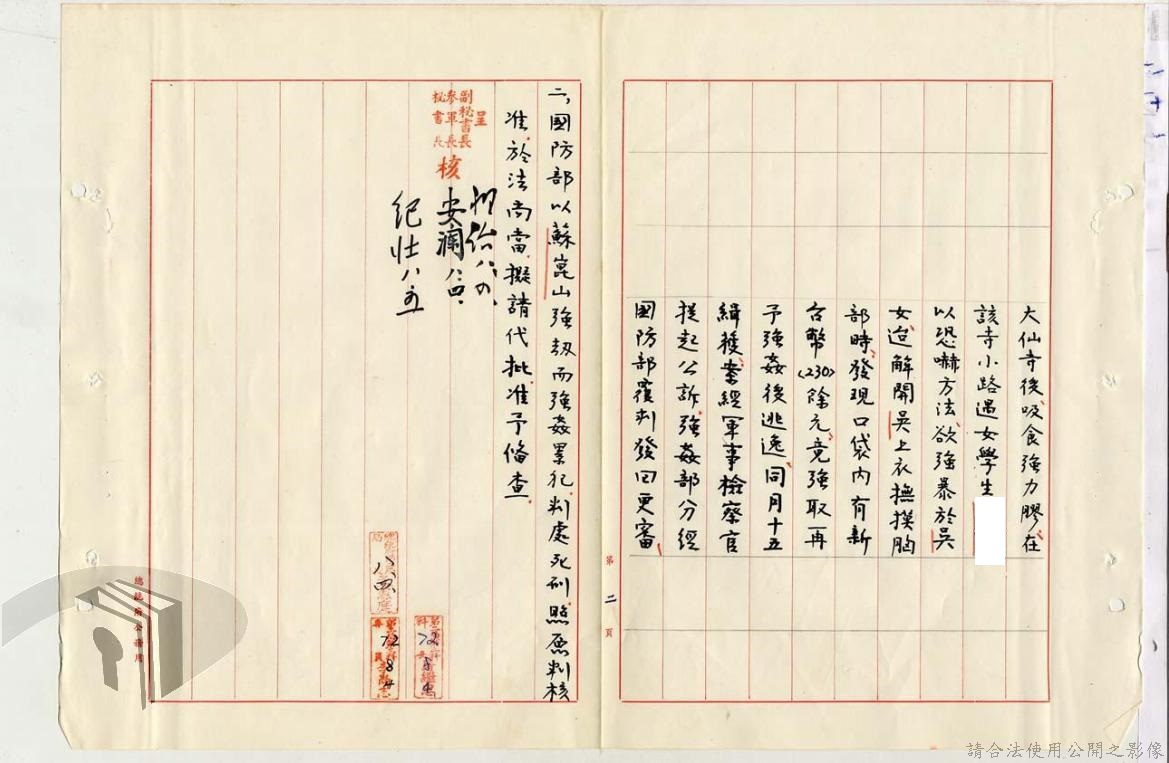 大仙寺後、吸食強力膠、在
該寺小路遇女學生
以恐嚇方法、欲強暴於吳
女、迨解開吳上衣撫摸胸
部時、發現口袋內有新
台幣(230)餘元、竟強取、再
予強姦後逃逸、同月十五
緝獲、案經軍事檢察官
提起公訴、強姦部分經
國防部覆判發回更審、
第二頁
二、國防部以蘇崑山強劫而強姦累犯、判處死刑、照原判核
准、於法尚當、擬請代批、准予備查。
呈
副秘書長
參軍長
秘書長
核
安瀾 八、四、
紀壯 八、五
八、四、
72
72
8
4
總統府公務用
請合法使用公開之影像